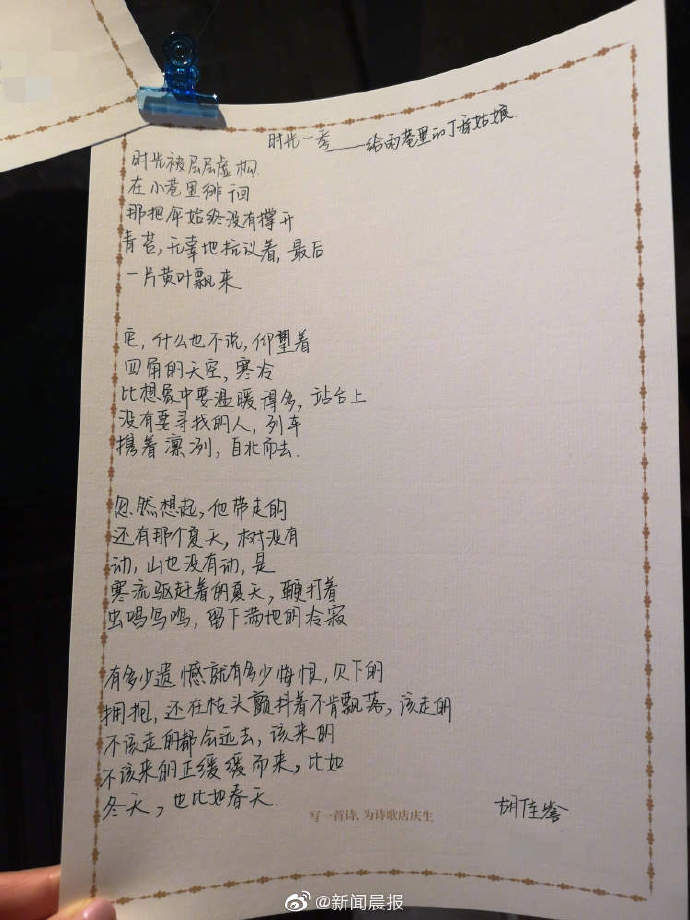 时光一卷——给雨巷里的丁香姑娘
时光被层层虚构
在小巷里徘徊
那把伞始终没有撑开
青苔,无辜地抗议着,最后
一片黄叶飘来
它,什么也不说,仰望着
四角的天空,寒冷
比想象中要温暖得多,站台上
没有要寻找的人,列车
携着凛冽,自北而去.
忽然想起,他带走的
还有那个夏天,树没有
动,山也没有动,是
寒流驱赶着的夏天,鞭打着
虫鸣鸟鸣,留下满地的冷寂
有多少遗憾就有多少悔恨,欠下的
拥抱,还在枝头颤抖着不肯飘落,该走的
不该走的都会远去,该来的
不该来的正缓缓而来,比如
冬天,也比如春天.
胡佳
写一首诗,为诗歌店庆生
@新闻晨报